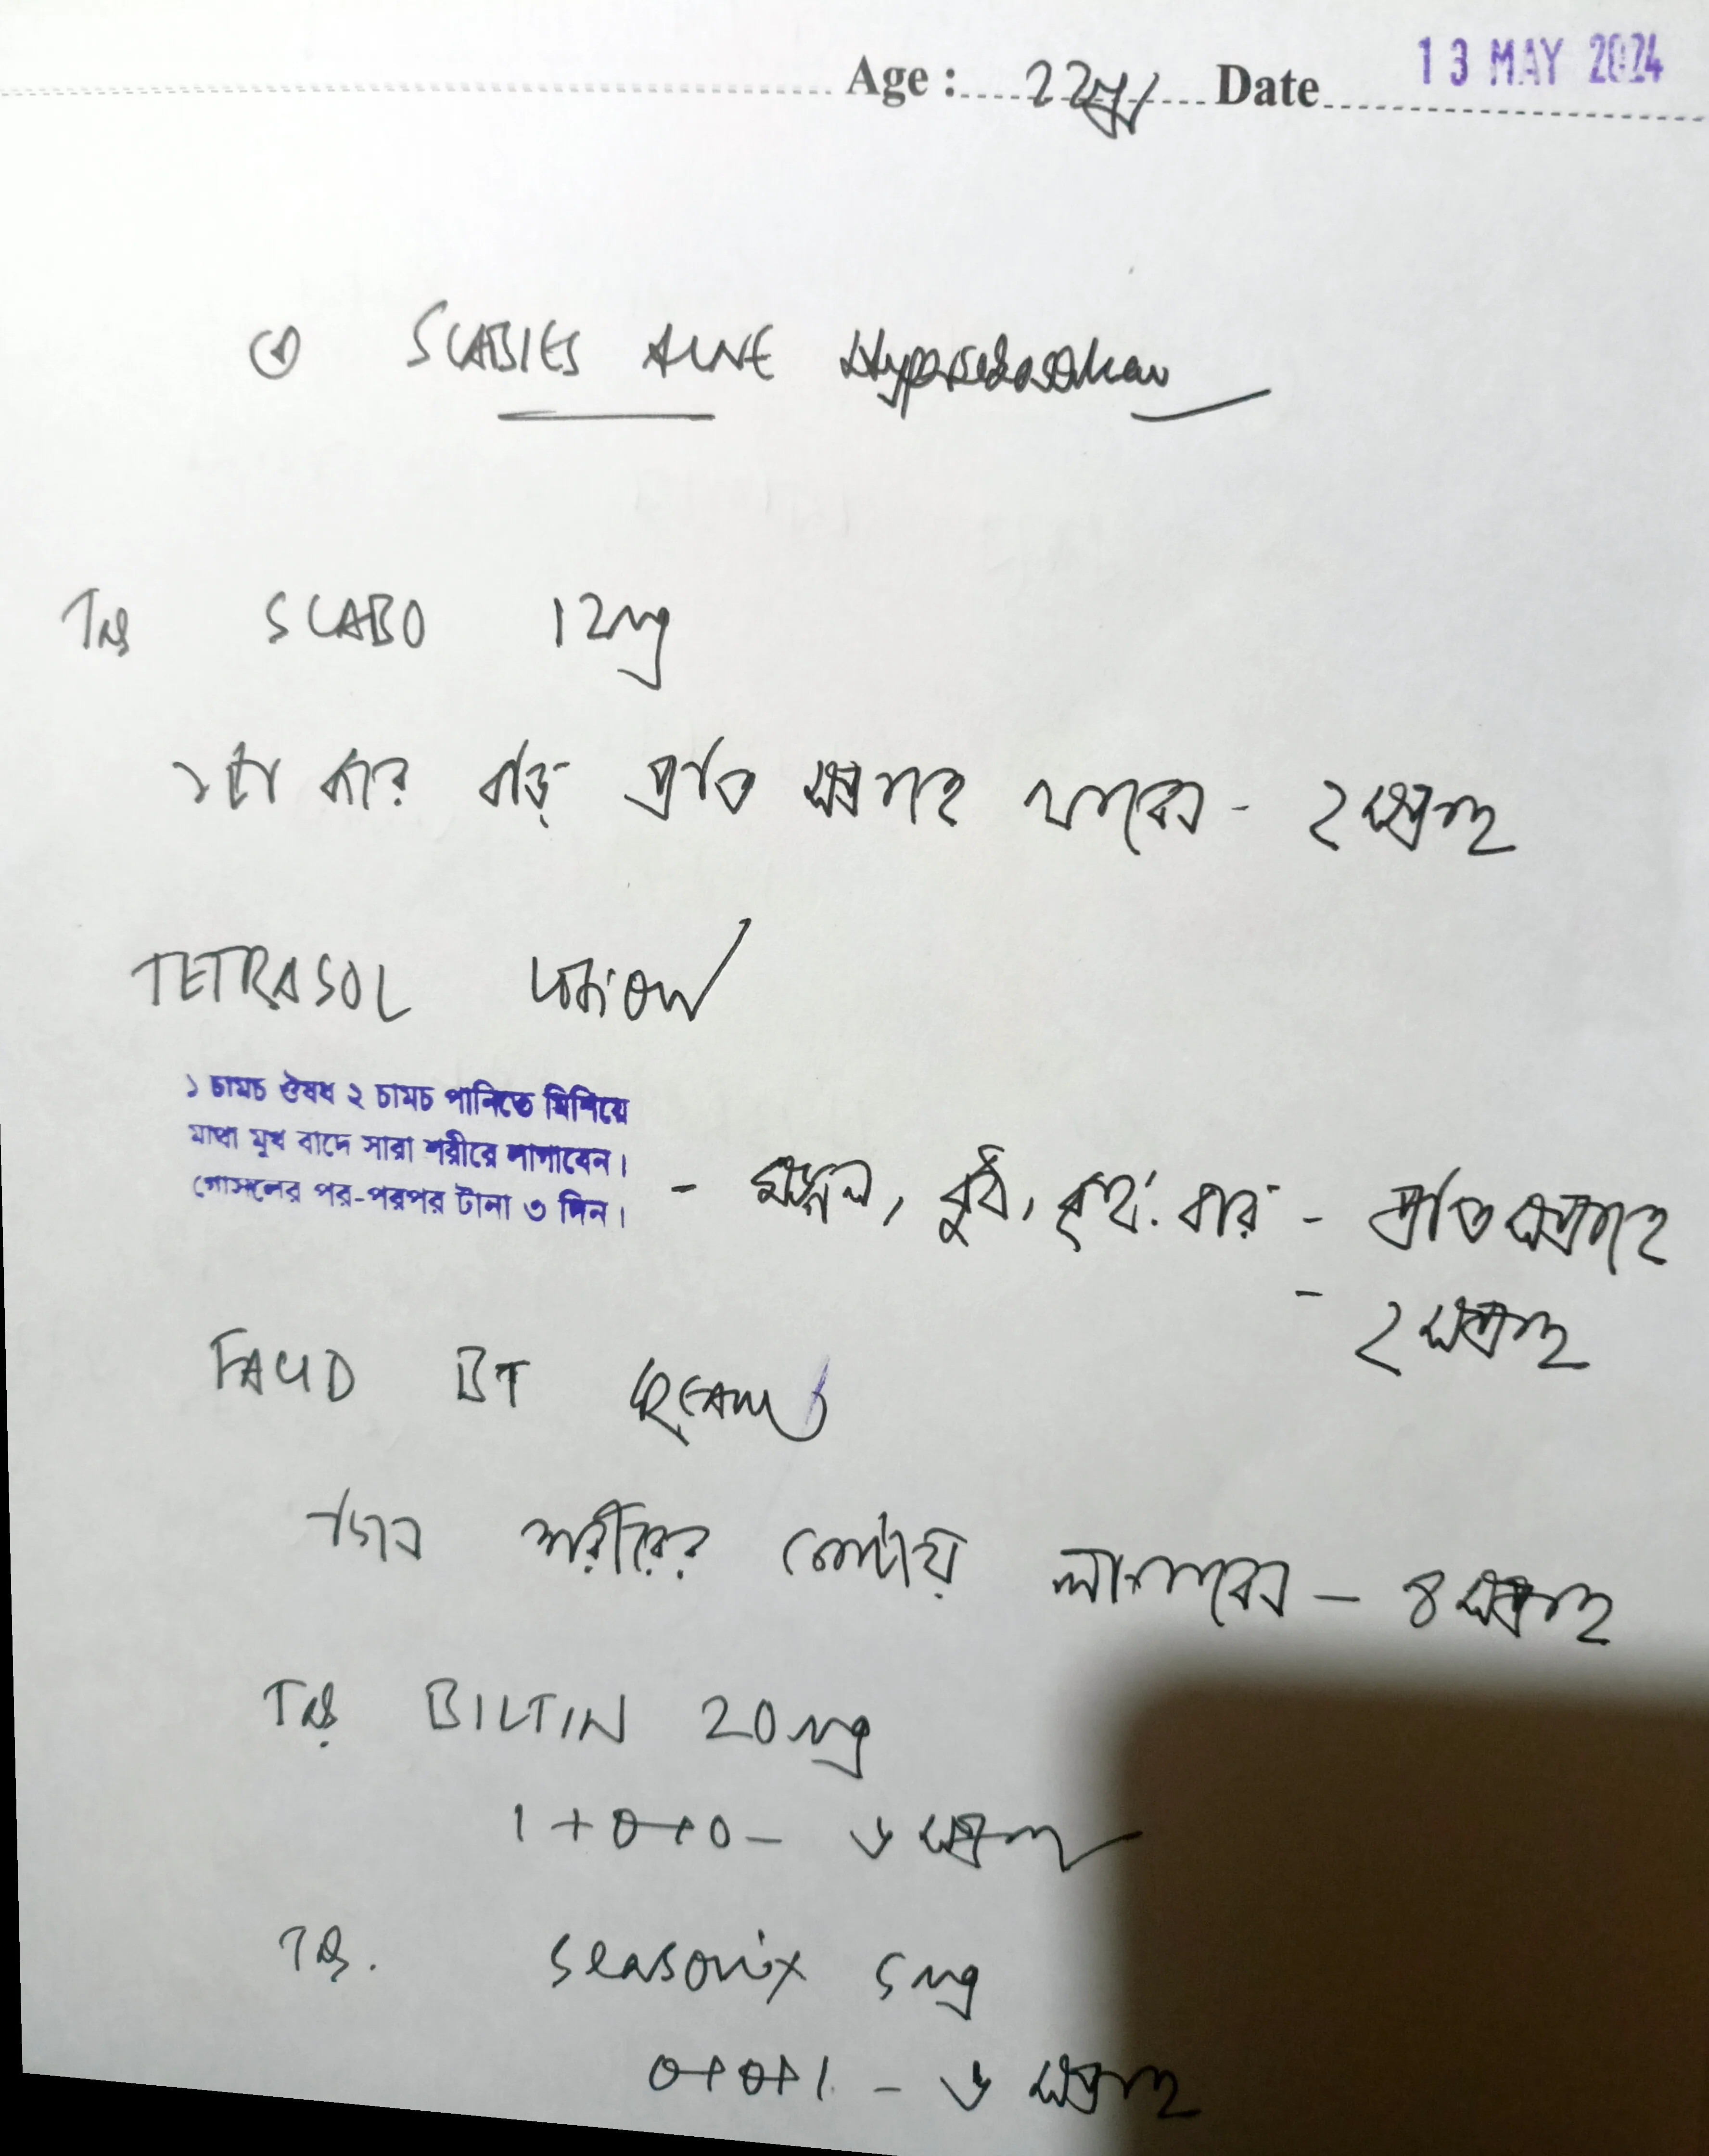 Age : 22 Date 13 MAY 2024
SCABIES ACNE
Tab SCABO 12mg
১টা করে বড়ি প্রতি সপ্তাহে খাবেন - ২ সপ্তাহ
TETRASOL LOTION
১ চামচ ঔষধ ২ চামচ পানিতে মিশিয়ে
মাথা মুখ বাদে সারা শরীরে লাগাবেন।
গোসলের পর-পরপর টানা ৩ দিন। - মঙ্গল, বুধ, বৃহঃ বার - প্রতি সপ্তাহে
- ২ সপ্তাহ
BT CREAM
শরীরের লাগাবেন - ৪ সপ্তাহ
Tab BILTIN 20mg
1+0+0 - ৬ সপ্তাহ
Tab. Seasonix 5mg
0+0+1 - ৬ সপ্তাহ